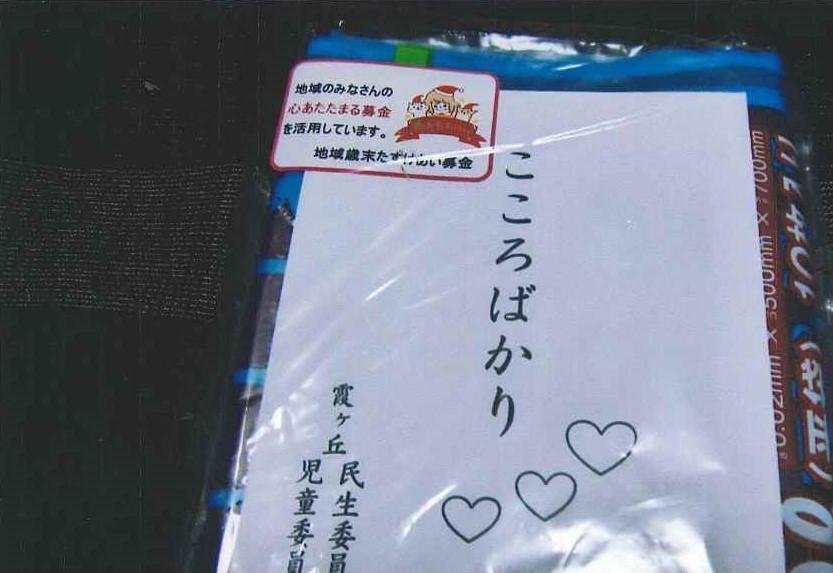 地域のみなさんの
心あたたまる募金
を活用しています。
地域歳末たすけあい募金
こころばかり
霞ヶ丘
民生委員
児童委員
0.02mm × 500mm × 700mm
10枚入
(平袋)